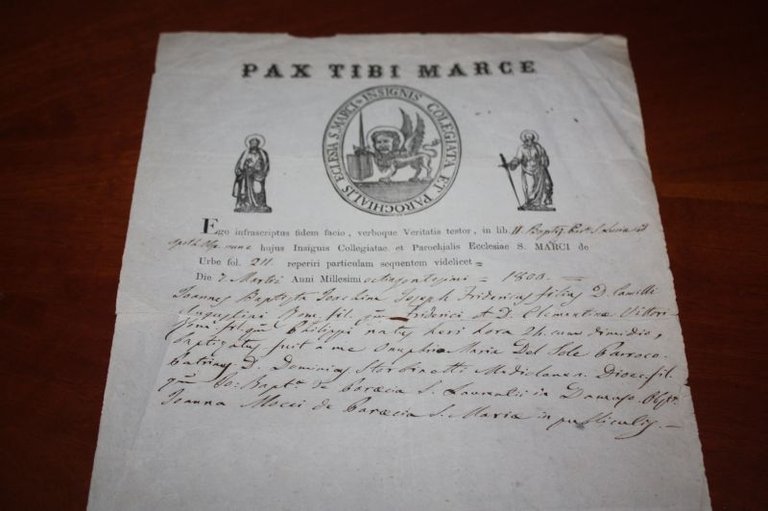 PAX TIBI MARCE
ECLESIA S. MARCI INSIGNIS COLEGIATA ET PAROCHIALIS
Ego infrascriptus fidem facio, verboque Veritatis testor, in lib. II Bapt
nunc hujus Insignis Collegiatae et Parochjalis Ecclesiae S. MARCI de
Urbe fol. 211 reperiri particulam sequentem videlicet =
Die 7 Martii Anni Millesimi octingentesimi = 1800. =
Joannes Baptista Joachim Joseph Fridericus filius D. Camilli
Augustini Rom. fil. qm Friderici et D. Clementinae Vittori
fil. qm Philippi natus heri hora 24 cum dimidio,
baptizatus fuit a me Onuphrio Maria Del Sole Parroco.
Patrinus D. Dominicus Mediolanen. Dioec. fil.
qm Jo: Bapt. de Paraecia S. Laurentii in Damaso. Obstx.
Joanna Mocci de Paraecia S. Mariae in publicolis. —